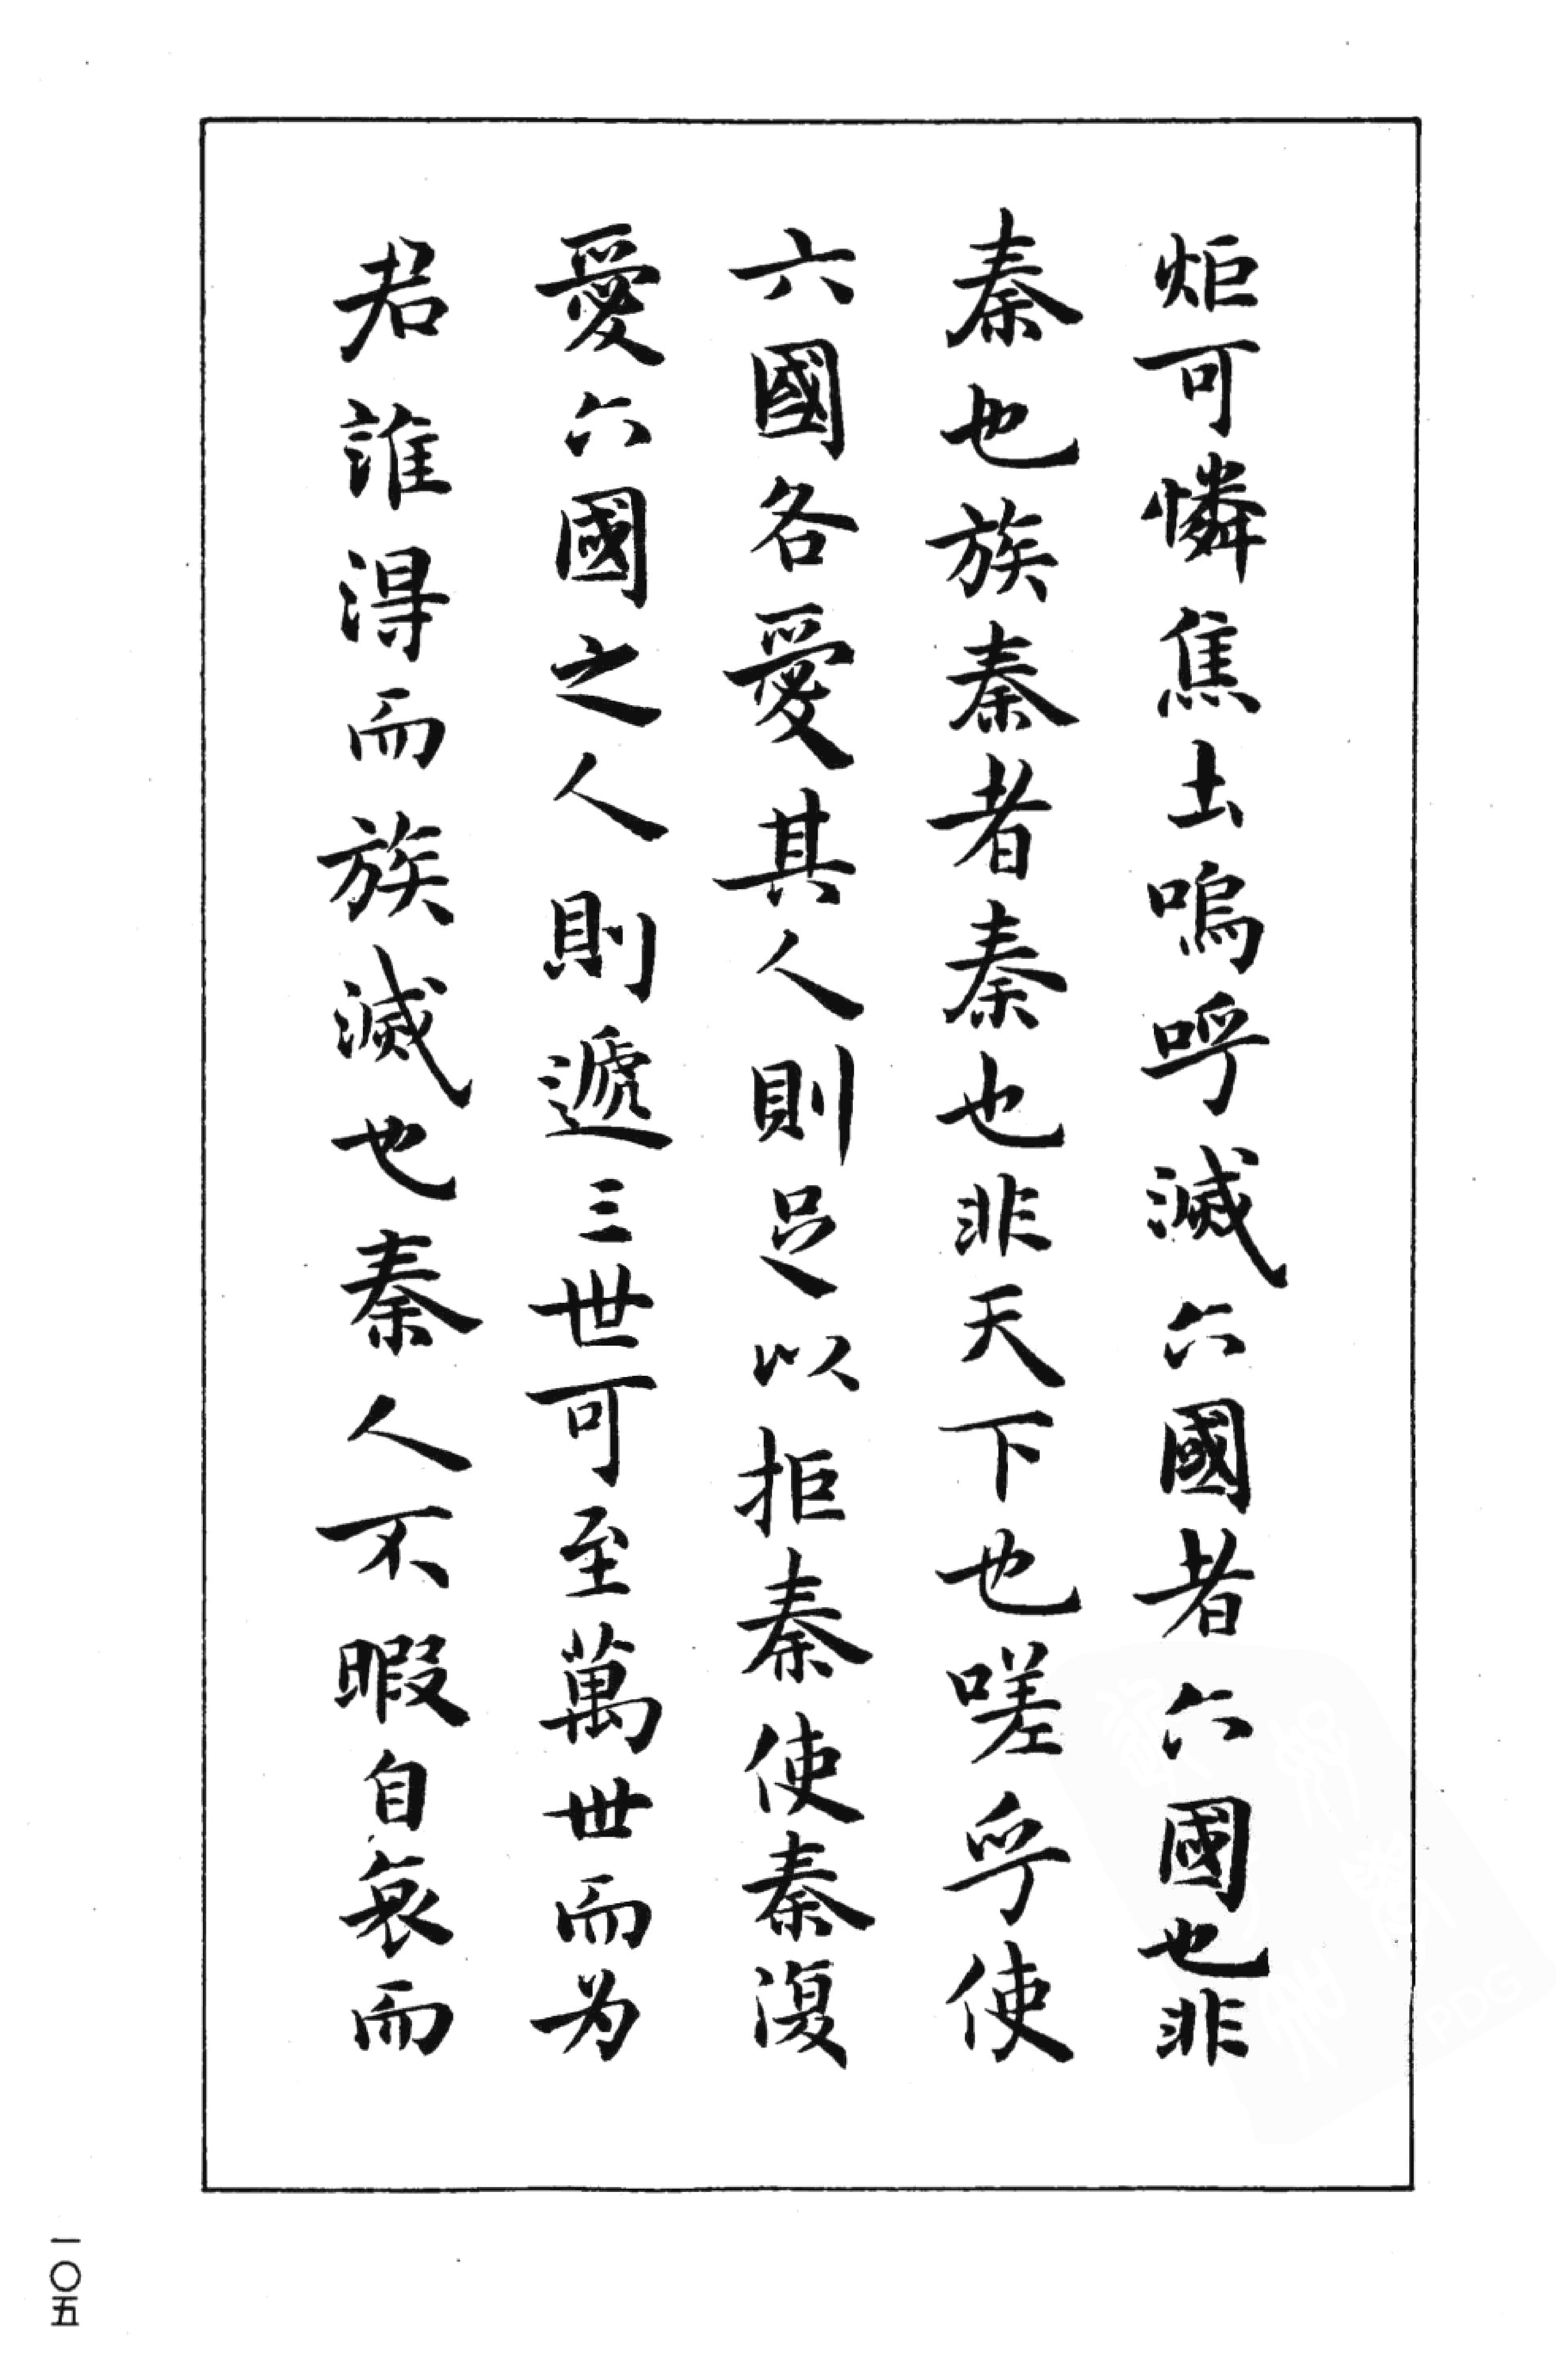 炬可憐焦土嗚呼滅六國者六國也非
秦也族秦者秦也非天下也嗟乎使
六國各愛其人則足以拒秦使秦復
愛六國之人則遞三世可至萬世而为
君誰得而族滅也秦人不暇自哀而
一〇五